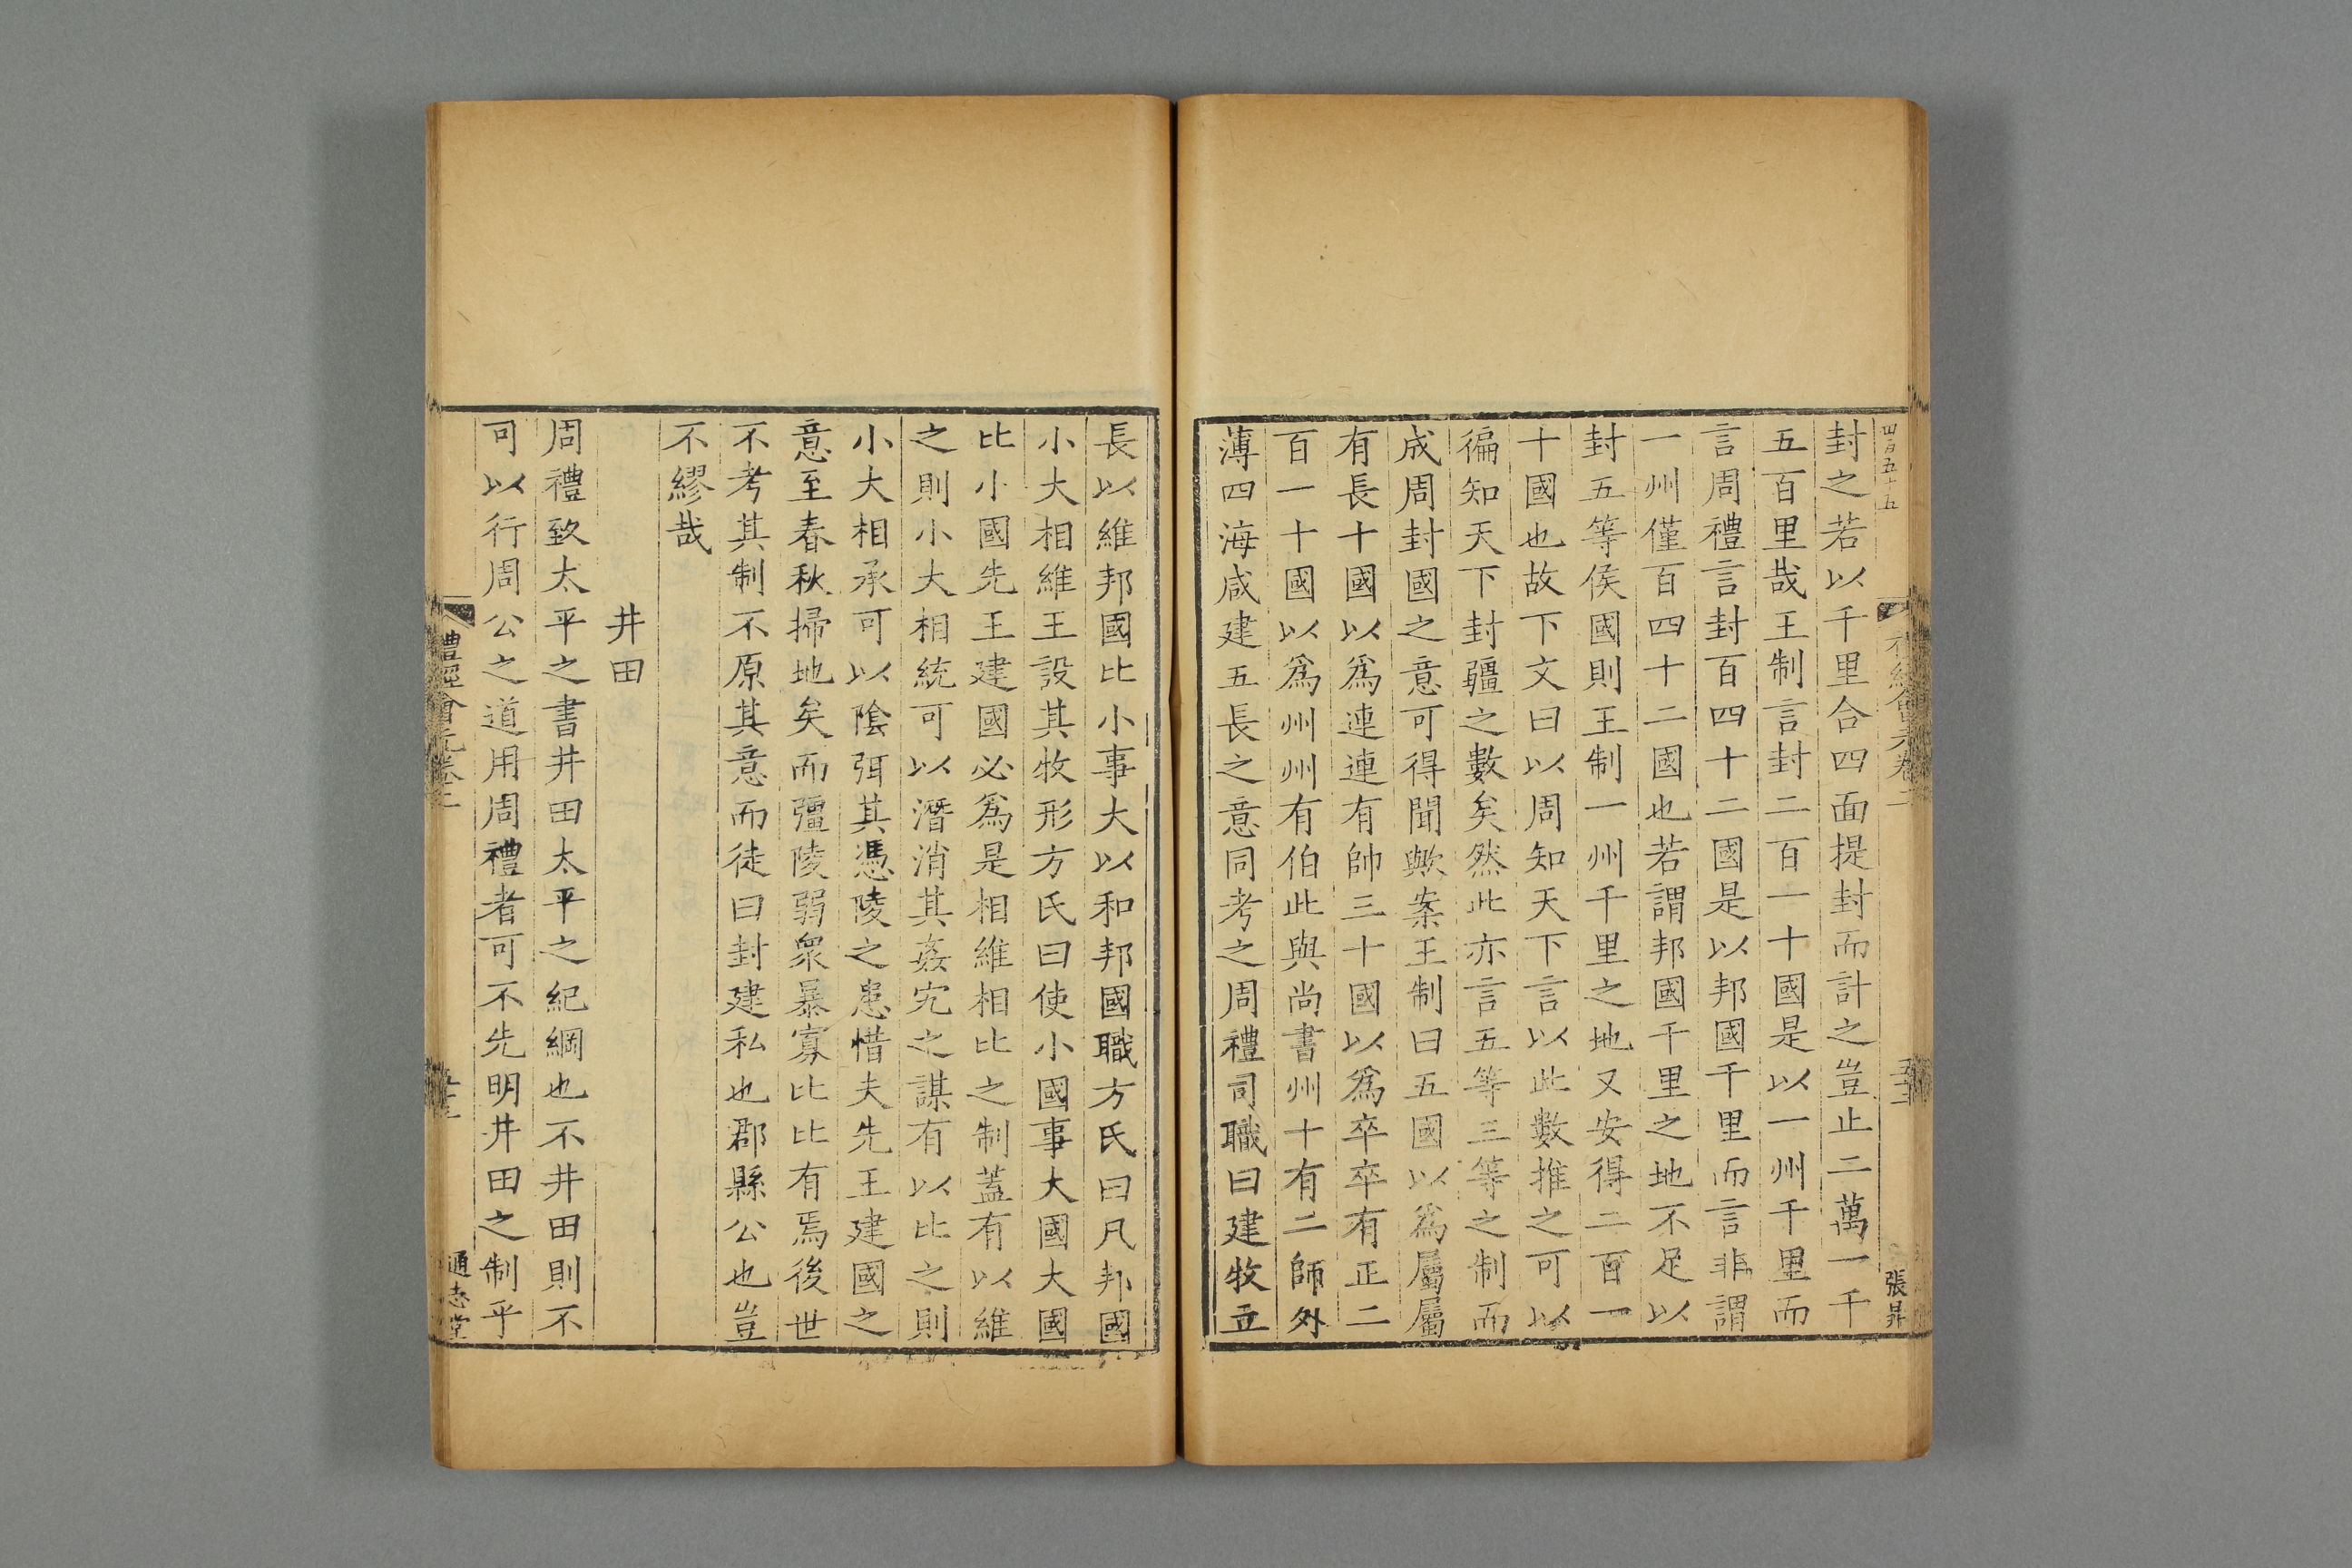 四百五十五
張昇
封之若以千里合四面提封而計之豈止二萬一千
五百里哉王制言封二百一十國是以一州千里而
言周禮言封百四十二國是以邦國千里而言非謂
一州僅百四十二國也若謂邦國千里之地不足以
封五等侯國則王制一州千里之地又安得二百一
十國也故下文曰以周知天下言以此數推之可以
徧知天下封疆之數矣然此亦言五等三等之制而
成周封國之意可得聞歟案王制曰五國以爲屬屬
有長十國以爲連連有帥三十國以爲卒卒有正二
百一十國以爲州州有伯此與尚書州十有二師外
薄四海咸建五長之意同考之周禮司職曰建牧立
長以維邦國比小事大以和邦國職方氏曰凡邦國
小大相維王設其牧形方氏曰使小國事大國大國
比小國先王建國必爲是相維相比之制蓋有以維
之則小大相統可以潛消其姦宄之謀有以比之則
小大相承可以陰弭其憑陵之患惜夫先王建國之
意至春秋掃地矣而彊陵弱衆暴寡比比有焉後世
不考其制不原其意而徒曰封建私也郡縣公也豈
不繆哉
井田
周禮致太平之書井田太平之紀綱也不井田則不
可以行周公之道用周禮者可不先明井田之制乎
禮經會元卷二
通志堂